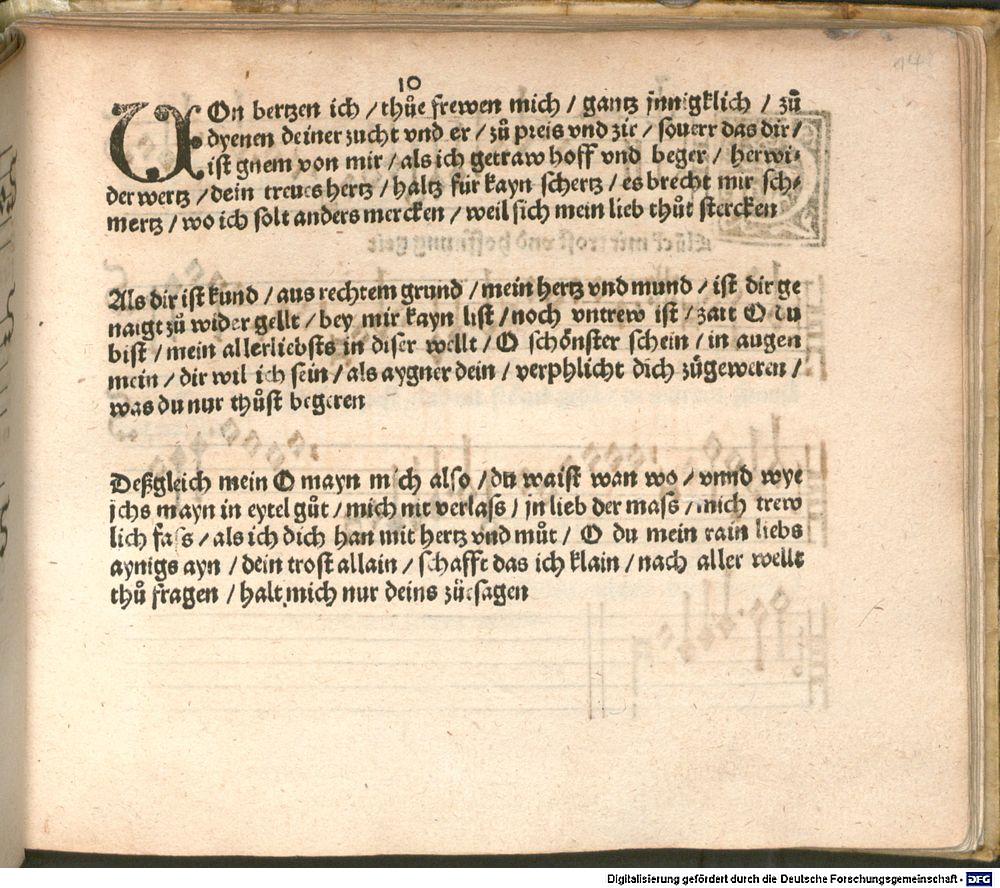 10
VOn hertzen ich / thůe frewen mich / gantz jnnigklich / zů
dyenen deiner zucht vnd er / zů preis vnd zir / souerr das dir /
ist gnem von mir / als ich getraw hoff vnd beger / herwi-
der wertz / dein treues hertz / haltz für kayn schertz / es brecht mir sch-
mertz / wo ich solt anders mercken / weil sich mein lieb thůt stercken
Als dir ist kund / aus rechtem grund / mein hertz vnd mund / ist dir ge
naigt zů wider gellt / bey mir kayn list / noch vntrew ist / zart O du
bist / mein allerliebsts in diser wellt / O schönster schein / in augen
mein / dir wil ich sein / als aygner dein / verphlicht dich zůgeweren /
was du nur thůst begeren
Deßgleich mein O mayn mich also / du waist wan wo / vnnd wye
jchs mayn in eytel gůt / mich nit verlass / jn lieb der mass / mich trew
lich fass / als ich dich han mit hertz vnd můt / O du mein rain liebs
aynigs ayn / dein trost allain / schafft das ich klain / nach aller wellt
thů fragen / halt mich nur deins zůsagen
Glück mit trost vnd hoffnung geit
Digitalisierung gefördert durch die Deutsche Forschungsgemeinschaft - DFG